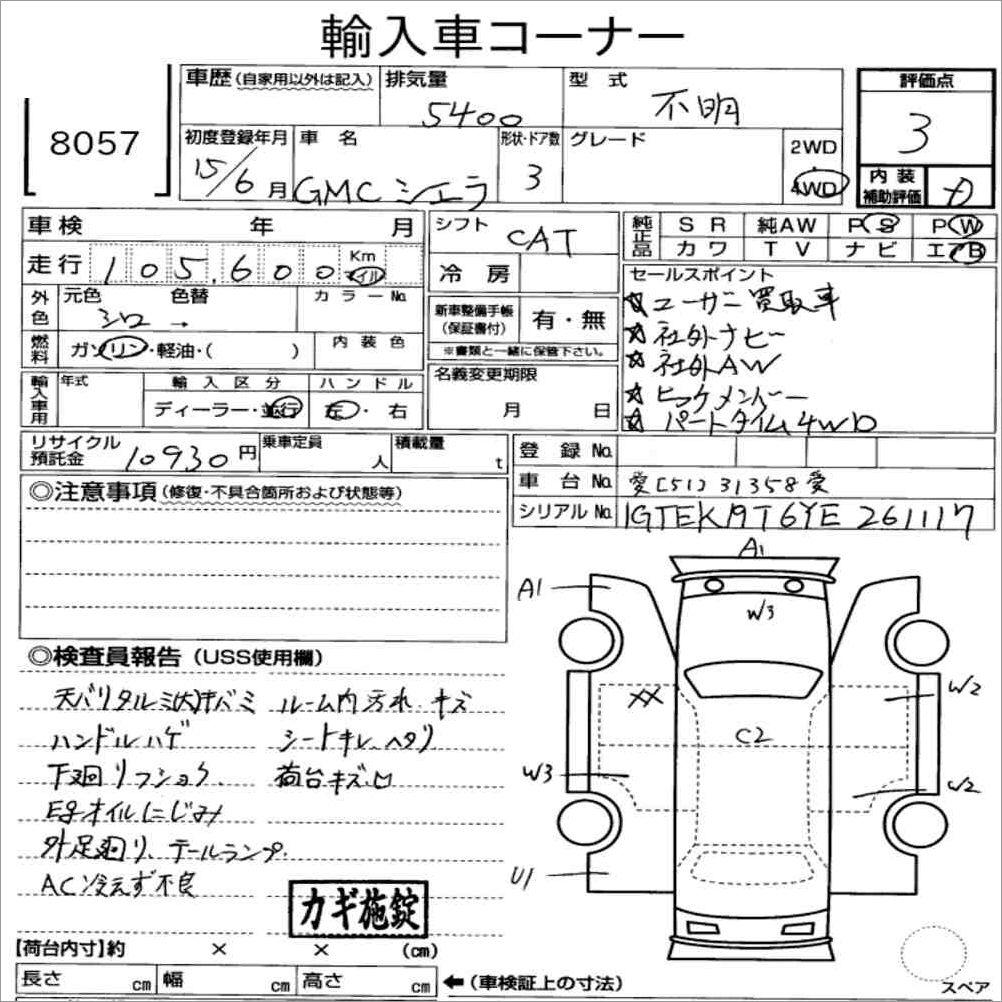 輸入車コーナー
8057
車歴(自家用以外は記入)
排気量
5400
型式
不明
評価点
3
初度登録年月
15/6月
車名
GMC シエラ
形状・ドア数
3
グレード
2WD
・
4WD
内装
補助評価
車検 年 月
シフト
CAT
純正品
SR 純AW PS PW
カワ TV ナビ エアB
走行 105,600 Km マイル
冷房
外色
元色 色替
シロ →
カラーNo.
新車整備手帳
(保証書付)
有・無
※書類と一緒に保管下さい。
セールスポイント
☆ユーザー買取車
☆社外ナビー
☆社外AW
☆ヒッチメンバー
☆パートタイム4WD
燃料
ガソリン・軽油・( )
内装色
輸入車用
年式
輸入区分
ディーラー・並行
ハンドル
左・右
名義変更期限
月 日
リサイクル
預託金
10930円
乗車定員
人
積載量
t
登録No.
車台No.
愛[51]31358愛
シリアルNo.
1GTEK19T6YE261117
◎注意事項(修復・不具合箇所および状態等)
◎検査員報告(USS使用欄)
天バリタルミ
ルーム内汚れ、キズ
ハンドルハゲ
シートキレ、ヘタリ
下廻りフショク
荷台キズ凹
E/gオイルにじみ
外足廻り、テールランプ
AC冷えず不良
カギ施錠
A1
A1
W3
XX
W2
C2
W3
W2
U1
【荷台内寸】約 × × (cm)
長さ cm 幅 cm 高さ cm
←(車検証上の寸法)
スペア